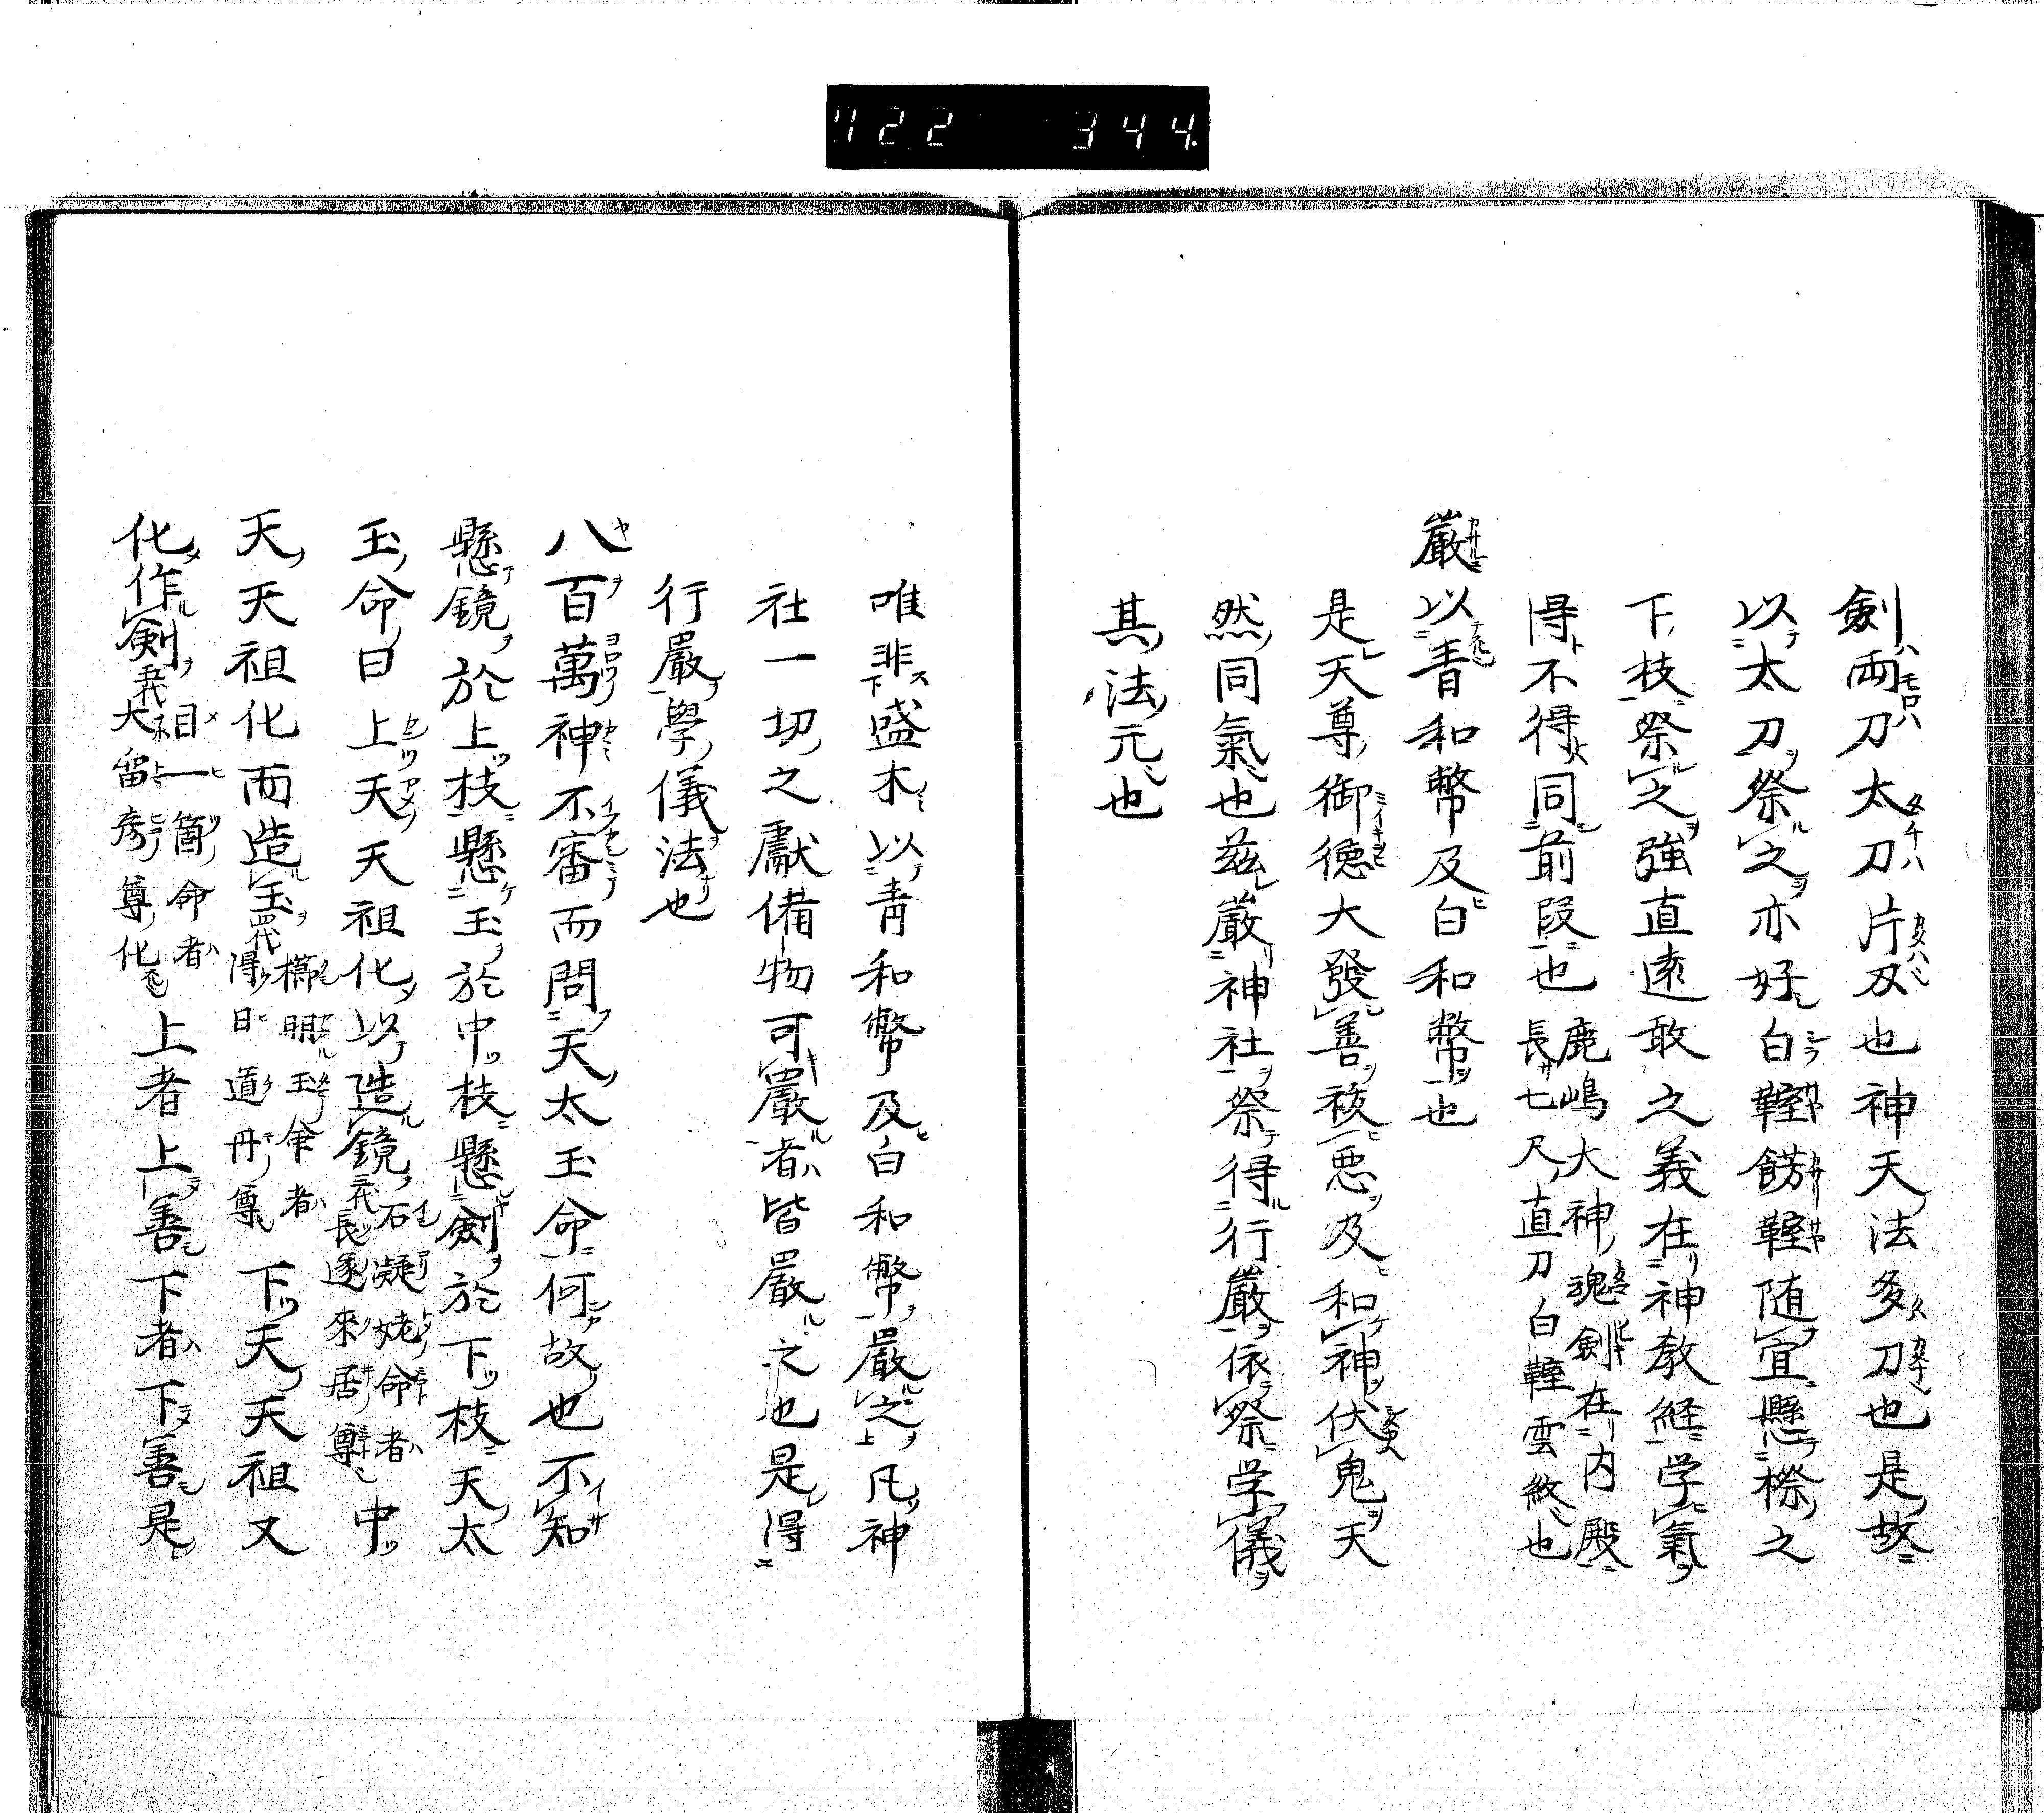 722 344
劍両刀太刀片刄也神天法多刀也是故
以太刀祭之亦好白鞘餝鞘随宜懸榤之
下枝祭之強直遠敢之義在神教経学氣
得不得同前段也
鹿嶋大神魂劍在内殿
長七尺直刀白鞘雲紋也
嚴以青和幣及白和幣也
是天尊御徳大發善祓惡及和神伏鬼天
然同氣也茲嚴神社祭得行嚴依祭学儀
其法元也
唯非盛木以青和幣及白和幣嚴之凡神
社一切之獻備物可嚴者皆嚴之也是得
行嚴學儀法也
八百萬神不審而問天太玉命何故也不知
懸鏡於上枝懸玉於中枝懸劍於下枝天太
玉命曰上天天祖化以造鏡
石凝姥命者
長邃來居尊
中
天天祖化而造玉
櫛明玉命者
得日道丹尊
下天天祖又
化作劍
目一箇命者
大留彦尊化
上者上善下者下善是